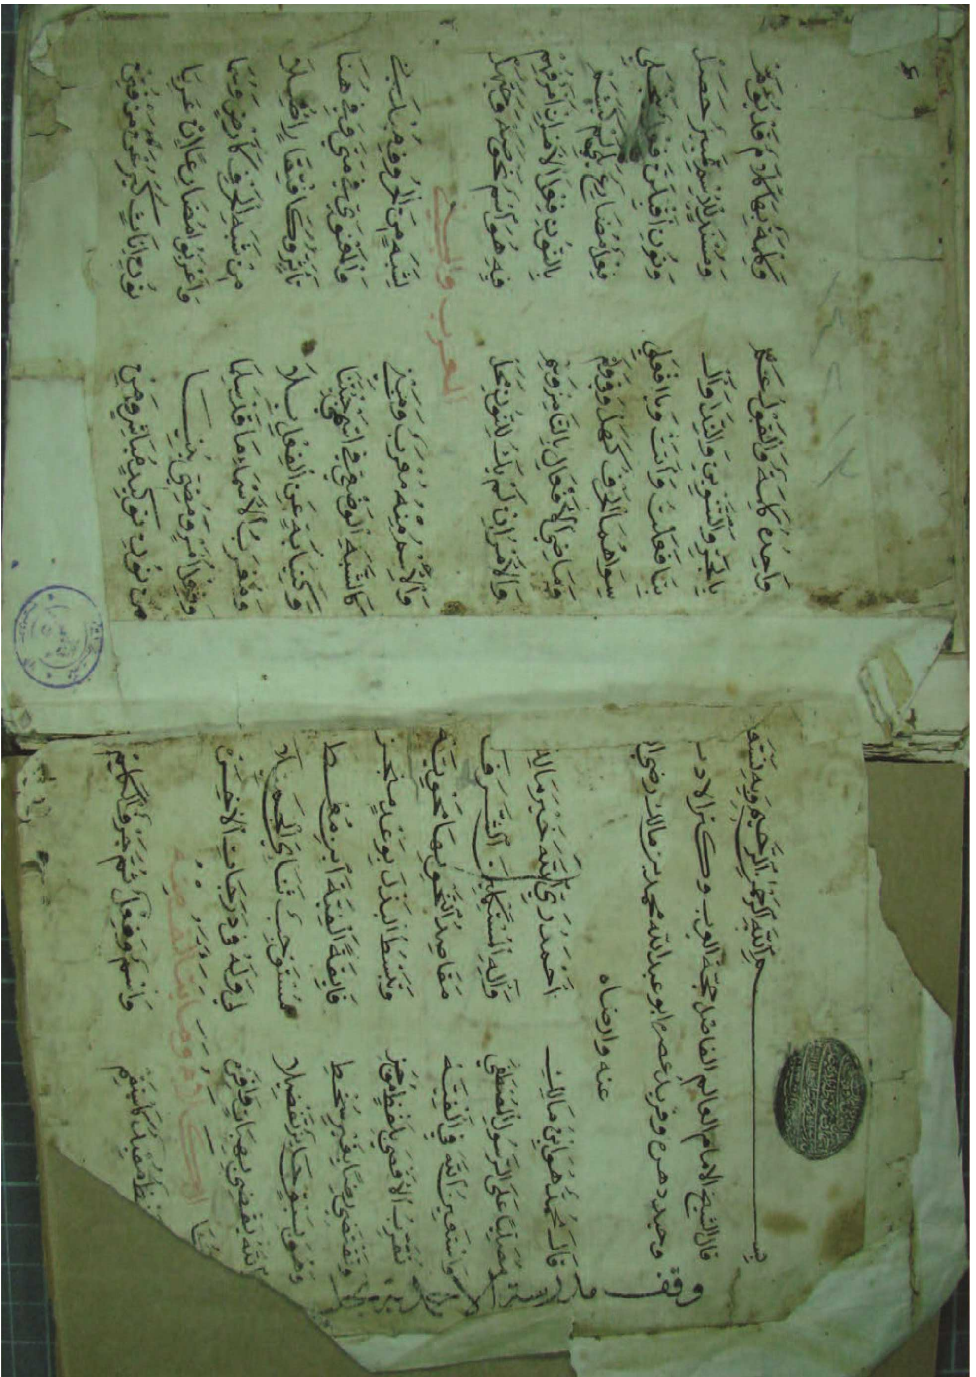 بسم الله الرحمن الرحيم وبه
قال الشيخ الامام العالم الفاضل حجة العرب وكنز الادب
وحيد دهره وفريد عصره ابو عبد الله محمد بن مالك رضي
عنه وارضاه
وقف مدرسة
قَالَ مُحَمَّدٌ هُوَ ابْنُ مَالِكِ أَحْمَدُ رَبِّي اللهَ خَيْرَ مَالِكِ
مُصَلِّيًا عَلَى الرَّسُولِ الْمُصْطَفَى وَآلِهِ الْمُسْتَكْمِلِينَ الشَّرَفَا
وَأَسْتَعِينُ اللهَ فِي أَلْفِيَّهْ مَقَاصِدُ النَّحْوِ بِهَا مَحْوِيَّهْ
تُقَرِّبُ الْأَقْصَى بِلَفْظٍ مُوجَزِ وَتَبْسُطُ الْبَذْلَ بِوَعْدٍ مُنْجَزِ
وَتَقْتَضِي رِضًا بِغَيْرِ سُخْطِ فَائِقَةً أَلْفِيَّةَ ابْنِ مُعْطِ
وَهُوَ بِسَبْقٍ حَائِزٌ تَفْضِيلَا مُسْتَوْجِبٌ ثَنَائِيَ الْجَمِيلَا
اللهُ يَقْضِي بِهِبَاتٍ وَافِرَهْ لِي وَلَهُ فِي دَرَجَاتِ الْآخِرَهْ
الْكَلَامُ وما يتألف منه
لَفْظٌ مُفِيدٌ كَاسْتَقِمْ وَاسْمٌ وَفِعْلٌ ثُمَّ حَرْفٌ الْكَلِمْ
وَاحِدُهُ كَلِمَةٌ وَالْقَوْلُ عَمّ وَكِلْمَةٌ بِهَا كَلَامٌ قَدْ يُؤَمّ
بِالْجَرِّ وَالتَّنْوِينِ وَالنِّدَا وَالْ وَمُسْنَدٍ لِلِاسْمِ تَمْيِيزٌ حَصَلْ
بِتَا فَعَلْتَ وَأَتَتْ وَيَا افْعَلِي وَنُونِ أَقْبِلَنَّ فِعْلٌ يَنْجَلِي
سِوَاهُمَا الْحَرْفُ كَهَلْ وَفِي وَلَمْ فِعْلٌ مُضَارِعٌ يَلِي لَمْ كَيَشَمّ
وَمَاضِيَ الْأَفْعَالِ بِالتَّا مِزْ وَسِمْ بِالنُّونِ فِعْلَ الْأَمْرِ إِنْ أَمْرٌ فُهِمْ
وَالْأَمْرُ إِنْ لَمْ يَكُ لِلنُّونِ مَحَلّ فِيهِ هُوَ اسْمٌ نَحْوُ صَهْ وَحَيَّهَلْ
المعرب والمبني
وَالِاسْمُ مِنْهُ مُعْرَبٌ وَمَبْنِي لِشَبَهٍ مِنَ الْحُرُوفِ مُدْنِي
كَالشَّبَهِ الْوَضْعِيِّ فِي اسْمَيْ جِئْتَنَا وَالْمَعْنَوِيِّ فِي مَتَى وَفِي هُنَا
وَكَنِيَابَةٍ عَنِ الْفِعْلِ بِلَا تَأَثُّرٍ وَكَافْتِقَارٍ أُصِّلَا
وَمُعْرَبُ الْأَسْمَاءِ مَا قَدْ سَلِمَا مِنْ شَبَهِ الْحَرْفِ كَأَرْضٍ وَسُمَا
وَفِعْلُ أَمْرٍ وَمُضِيٍّ بُنِيَا وَأَعْرَبُوا مُضَارِعًا إِنْ عَرِيَا
مِنْ نُونِ تَوْكِيدٍ مُبَاشِرٍ وَمِنْ نُونِ إِنَاثٍ كَيَرُعْنَ مَنْ فُتِنْ